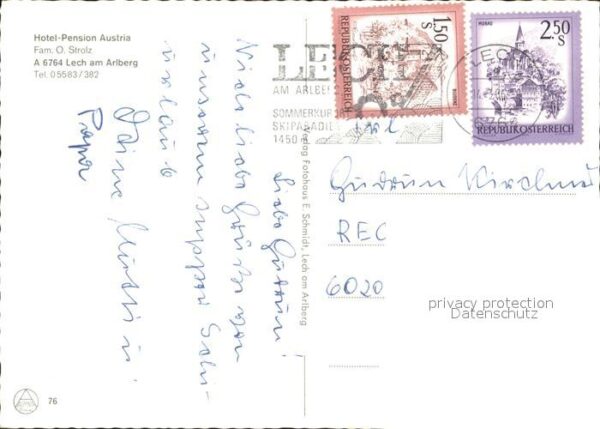 Hotel-Pension Austria
Fam. O. Strolz
A 6764 Lech am Arlberg
Tel. 05583/382
1.50 S
REPUBLIK ÖSTERREICH
MURAU
2.50 S
REPUBLIK ÖSTERREICH
LECH
AM ARLBERG
SOMMERKURORT
SKIPARADIES
1450
LECH
6764
Liebe Gudrun!
Viele liebe Grüße von
unserem super Schi-
urlaub
Deine Mutti u.
Papa
Verlag Fotohaus E. Schmidt, Lech am Arlberg
Gudrun
REC
6020
privacy protection
Datenschutz
76